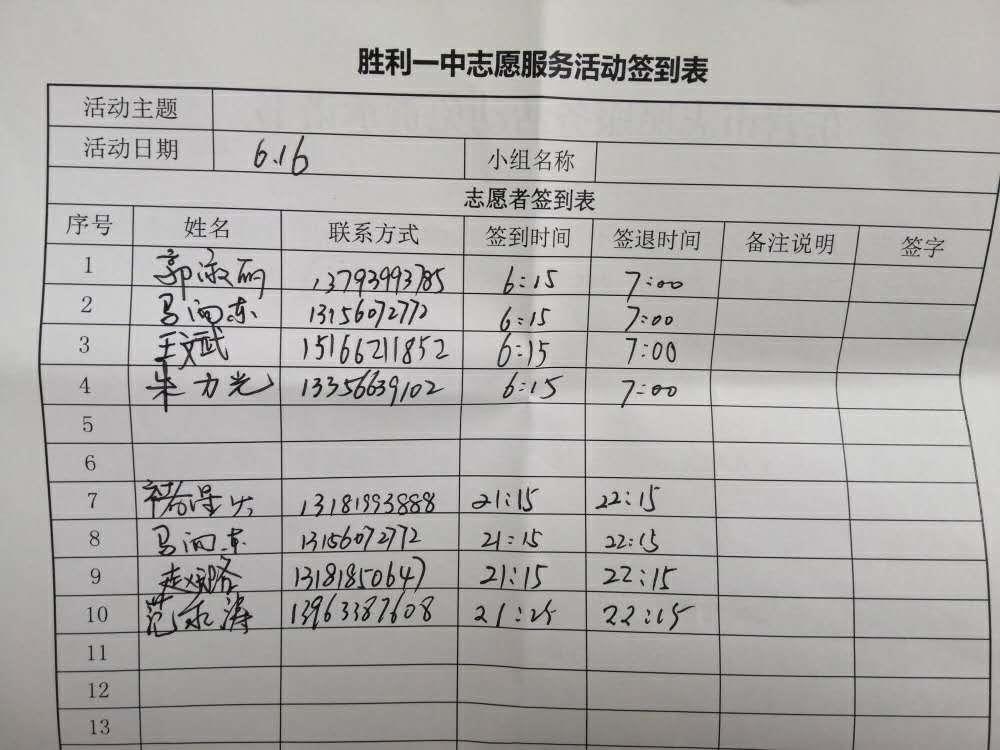 胜利一中志愿服务活动签到表
活动主题
活动日期 6.16 小组名称
志愿者签到表
序号 姓名 联系方式 签到时间 签退时间 备注说明 签字
1 郭淑丽 13793993785 6:15 7:00
2 马向东 13156072772 6:15 7:00
3 王文武 15166211852 6:15 7:00
4 朱力光 13356639102 6:15 7:00
5
6
7 13181993888 21:15 22:15
8 马向东 13156072772 21:15 22:15
9 赵 13181850647 21:15 22:15
10 范永涛 13963387608 21:25 22:15
11
12
13